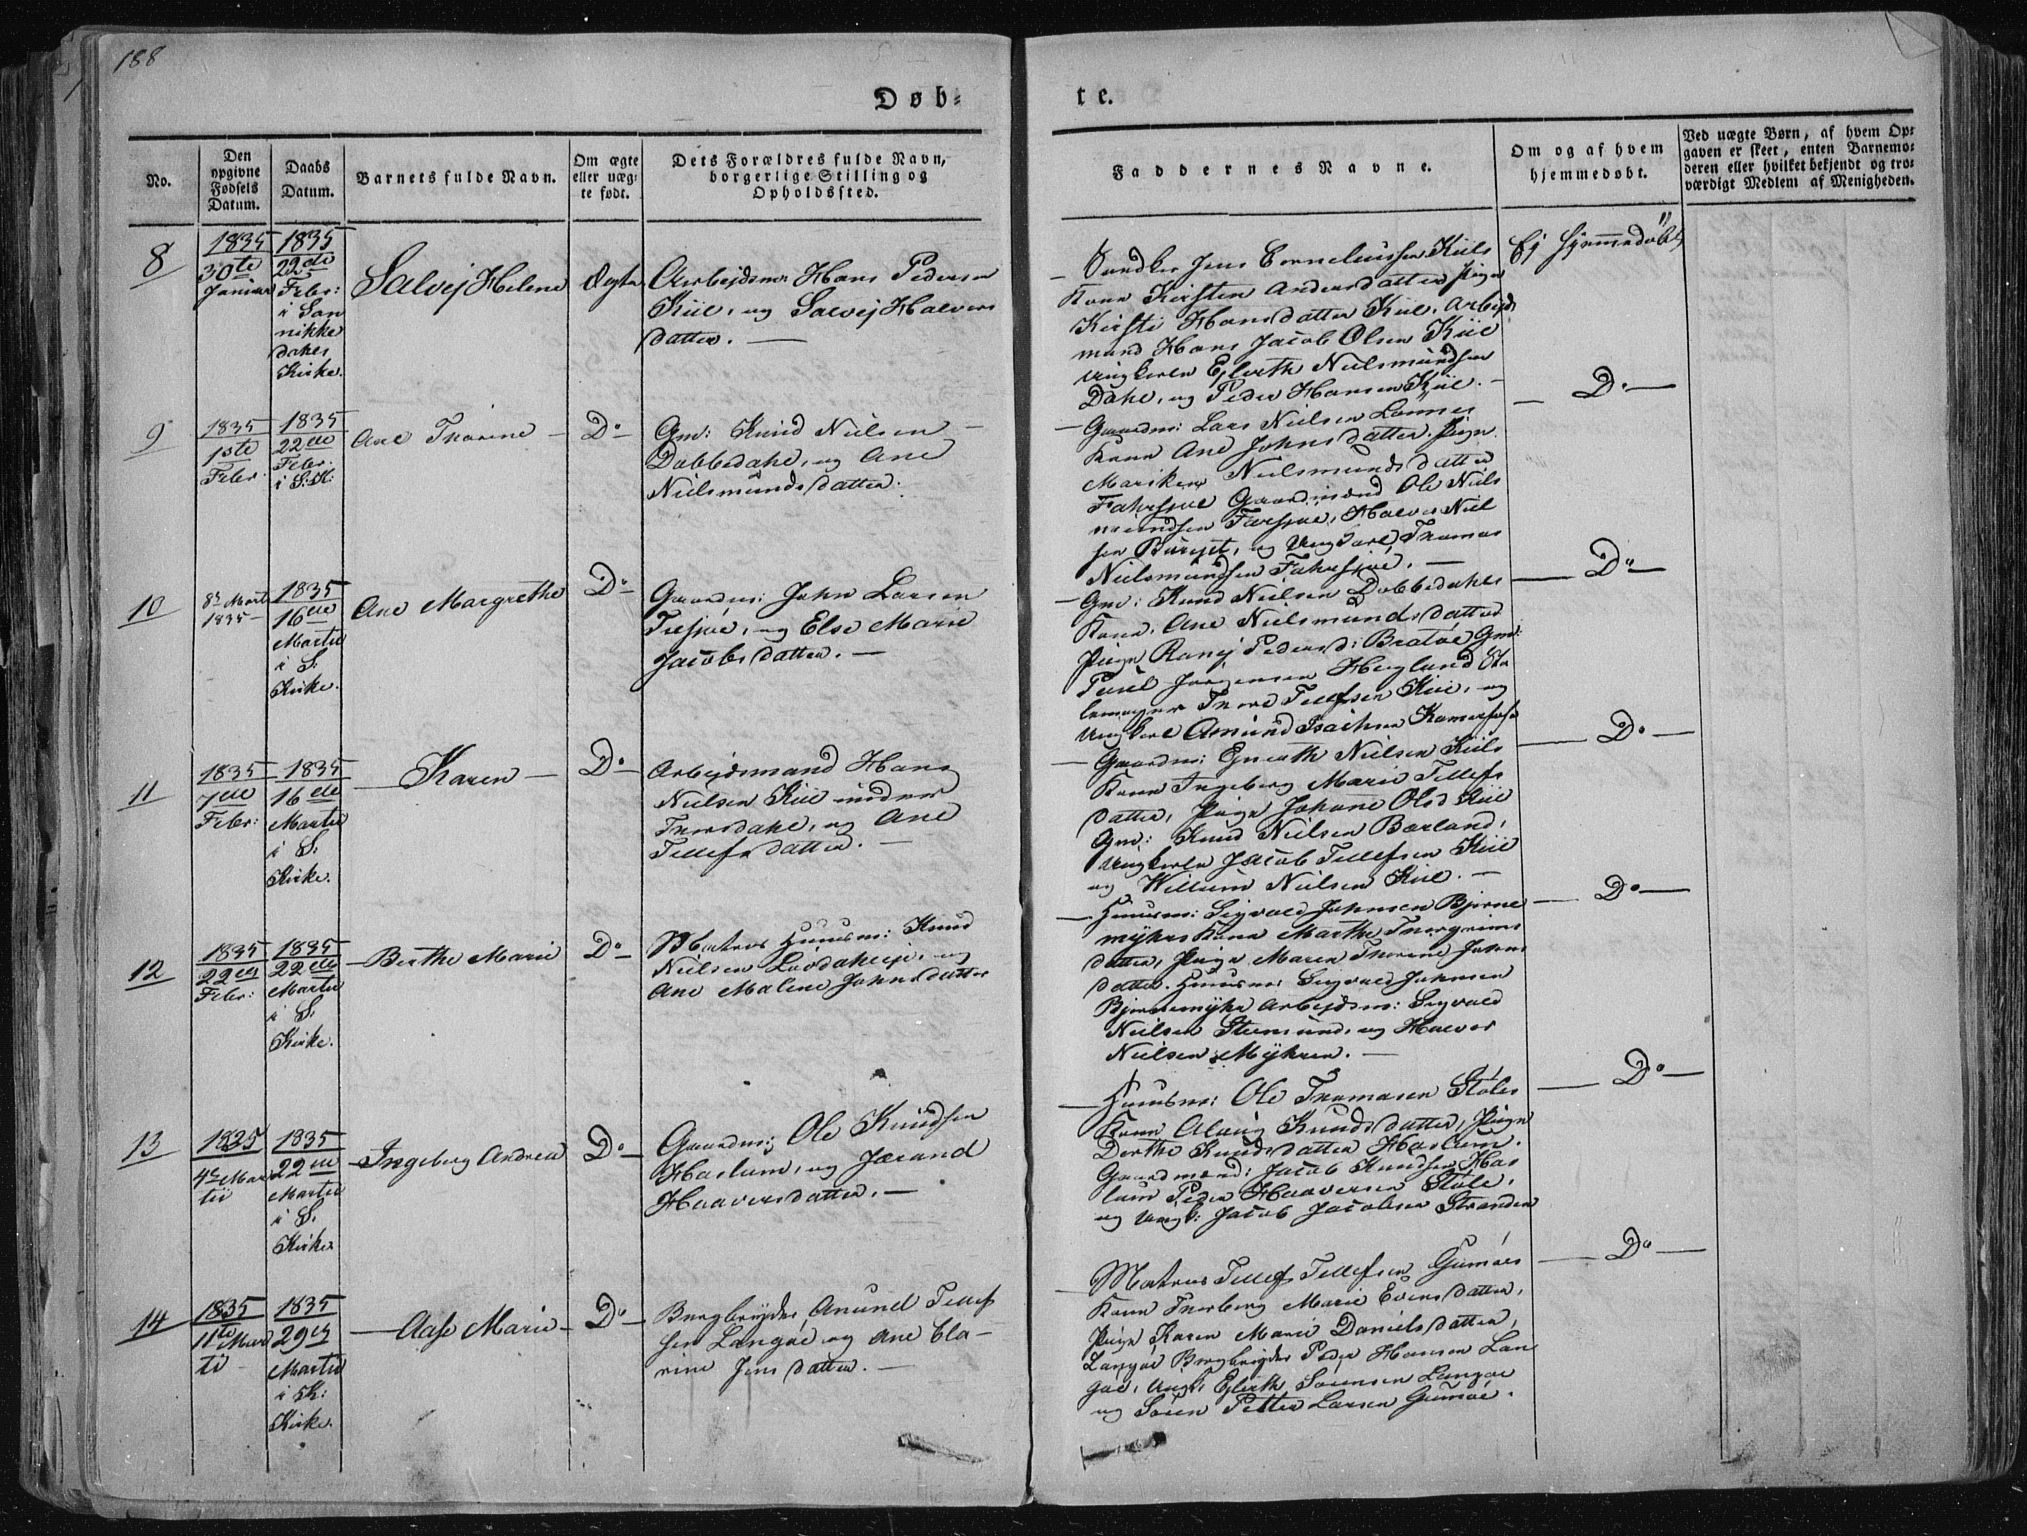 188
Døb-
te.
No.
Den
opgivne
Fødsels
Datum.
Daabs
Datum.
Barnets fulde Navn.
Om ægte
eller uæg-
te født.
Dets Forældres fulde Navn,
borgerlige Stilling og
Opholdssted.
Faddernes Navne.
Om og af hvem
hjemmedøbt.
Ved uægte Børn, af hvem Op-
gaven er skeet, enten Barnemo-
deren eller hvilket bekjendt og tro-
værdigt Medlem af Menigheden.
8
1835
30te
Januar
1835
22de
Febr:
i San
nikke
dahls
Kirke.
Salvej Helene
Ægte
Arbejdsm: Hans Pedersen
Kiil, og Salvej Halvors
datter.
Jens Corneliussen Kiils
Kone Kirsten Andersdatter Pige
Kirsti Hansdatter Kiil, Arbejds
mand Hans Jacob Olsen Kiil
Ungkarle Ejlerth Nielsmundsen
Dahl, og Peder Hansen Kiil.
Ej hjemmedøbt
9
1835
1ste
Febr.
1835
22de
Febr.
i S. K:
Ane Thorine
Do
Gm: Knud Nielsen
Dobbedahl, og Ane
Nielsmundsdatter.
Gaardm: Lars Nielsen Lonnes
Kone Ane Johnsdatter. Pige
Mariken Nielsmundsdatter
Fahrsjøe Gaardmænd Ole Niels
mundsen Farsjøe, Halvor Niel
sen, og Ungkarl Thomas
Nielsmundsen Fahrsjøe.
Do
10
8de Marti
1835
1835
16de
Martii
i S.
Kirke.
Ane Margrethe
Do
Gaardm: John Larsen
og Else Marie
Jacobsdatter.
Gm: Knud Nielsen Dobbedahls
Kone, Ane Nielsmundsdatter
Pige Ranej Pedersd: Bratøe Gm:
Povel Jørgensen Heglund
Thore Tellefsen Kiil, og
Ungkarl Amund Isachsen
Do
11
1835
7de
Febr:
1835
16de
Martii
i S.
Kirke.
Karen
Do
Arbejdsmand Hans
Nielsen Kiil under
Thorsdahl, og Ane
Tellefsdatter.
Gaardm: Nielsen Kiils
Kone Ingeborg Marie Tellefs
datter, Pige Johane Olsd Kiil
Gm: Knud Nielsen Barland,
Ungkarle Jacob Tellefsen Kiil
og Willum Nielsen Kiil.
Do
12
1835
22de
Febr:
1835
22de
Martii
i S.
Kirke.
Berthe Marie
Do
Matros Huusm: Knud
Nielsen og
Ane Malene Johnsdatter
Huusm: Sigvald Johnsen Bjørne
myhrs Kone Marthe Thorgrims
datter, Pige Maren Thorine Johns
datter. Huusm: Sigvald Johnsen
Bjørnemyhr Arbejdsm: Sigvald
Nielsen og Halvor
Nielsen Myhren.
Do
13
1835
4de Mar
tii
1835
22de
Martii
i S.
Kirke
Ingeborg Andrea
Do
Gaardm: Ole Knudsen
Haslum, og Jørand
Haaversdatter.
Huusm: Ole Thomasen Støles
Kone Alaug Knudsdatter, Pige
Dorthe Knudsdatter Haslum.
Gaardmænd: Jacob Knudsen Has
lum Peder Haaversen Støle,
og Ungk: Jacob Jacobsen Stranden
Do
14
1835
11te Mar
ti
1835
29de
Martii
i K:
Kirke.
Aase Marie
Do
Bergbryder Anund Tellef
sen Langøe og Ane Cla-
rine Jensdatter.
Matros Tellef Tellefsen Gumøes
Kone Thorborg Marie Evensdatter,
Pige Karen Marie Danielsdatter,
Langøe Bergbryder Peder Hansen Lan
gøe, Ungk: Ejlerth Sørensen Langøe
og Søren Petter Larsen Gumøe.
Do